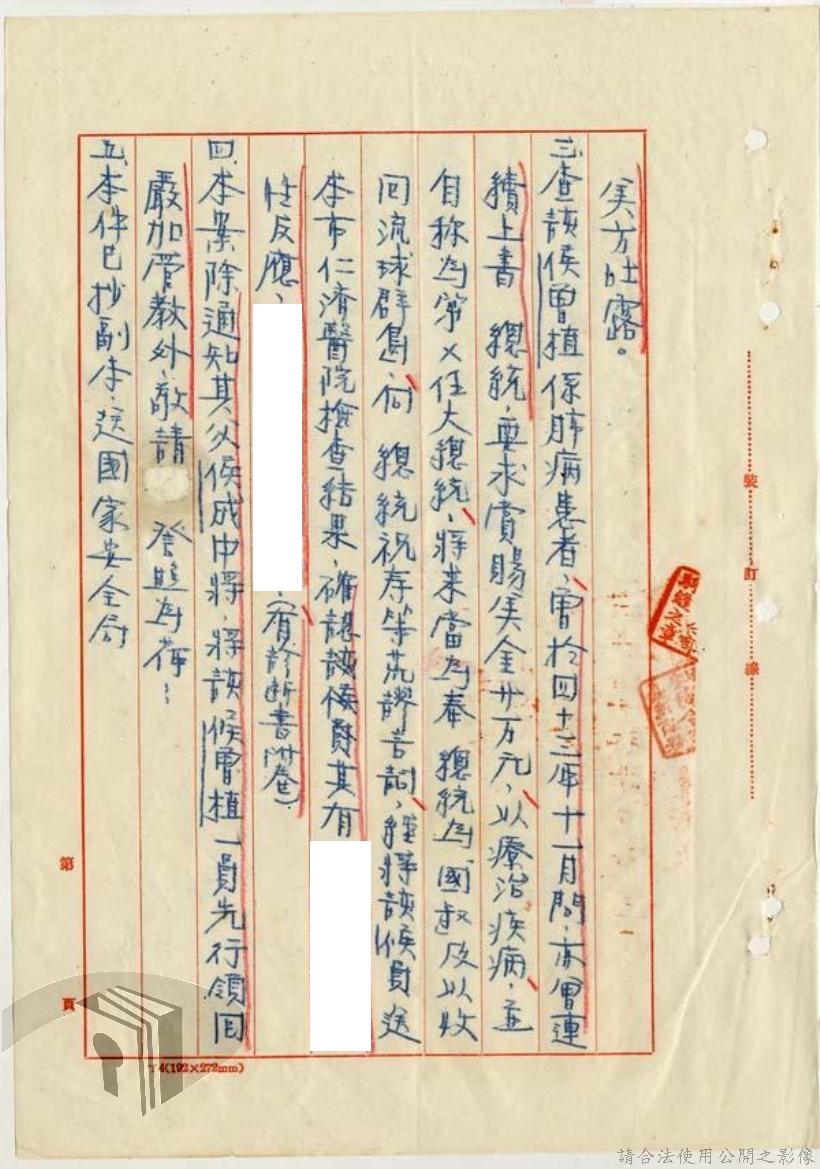 美方吐露。
三、查該侯曾植係肺病患者、曾於四十三年十一月間、亦曾連
續上書 總統、要求賞賜美金卅万元、以療治疾病、並
自称為第乂任大總統、將来當為奉 總統為國父及以收
回流球群島、向 總統祝寿等荒謬言詞、經將該侯員送
本市仁濟醫院檢查結果、確認該侯員其有
性反應、 、(有診断書附卷)
四、本案除通知其父侯成中將、將該侯曾植一員先行領回
嚴加管教外、敬請 登照為荷:
五、本件已抄副本、送國家安全局
裝
訂
線
第
頁
T4(192×272mm)
請合法使用公開之影像